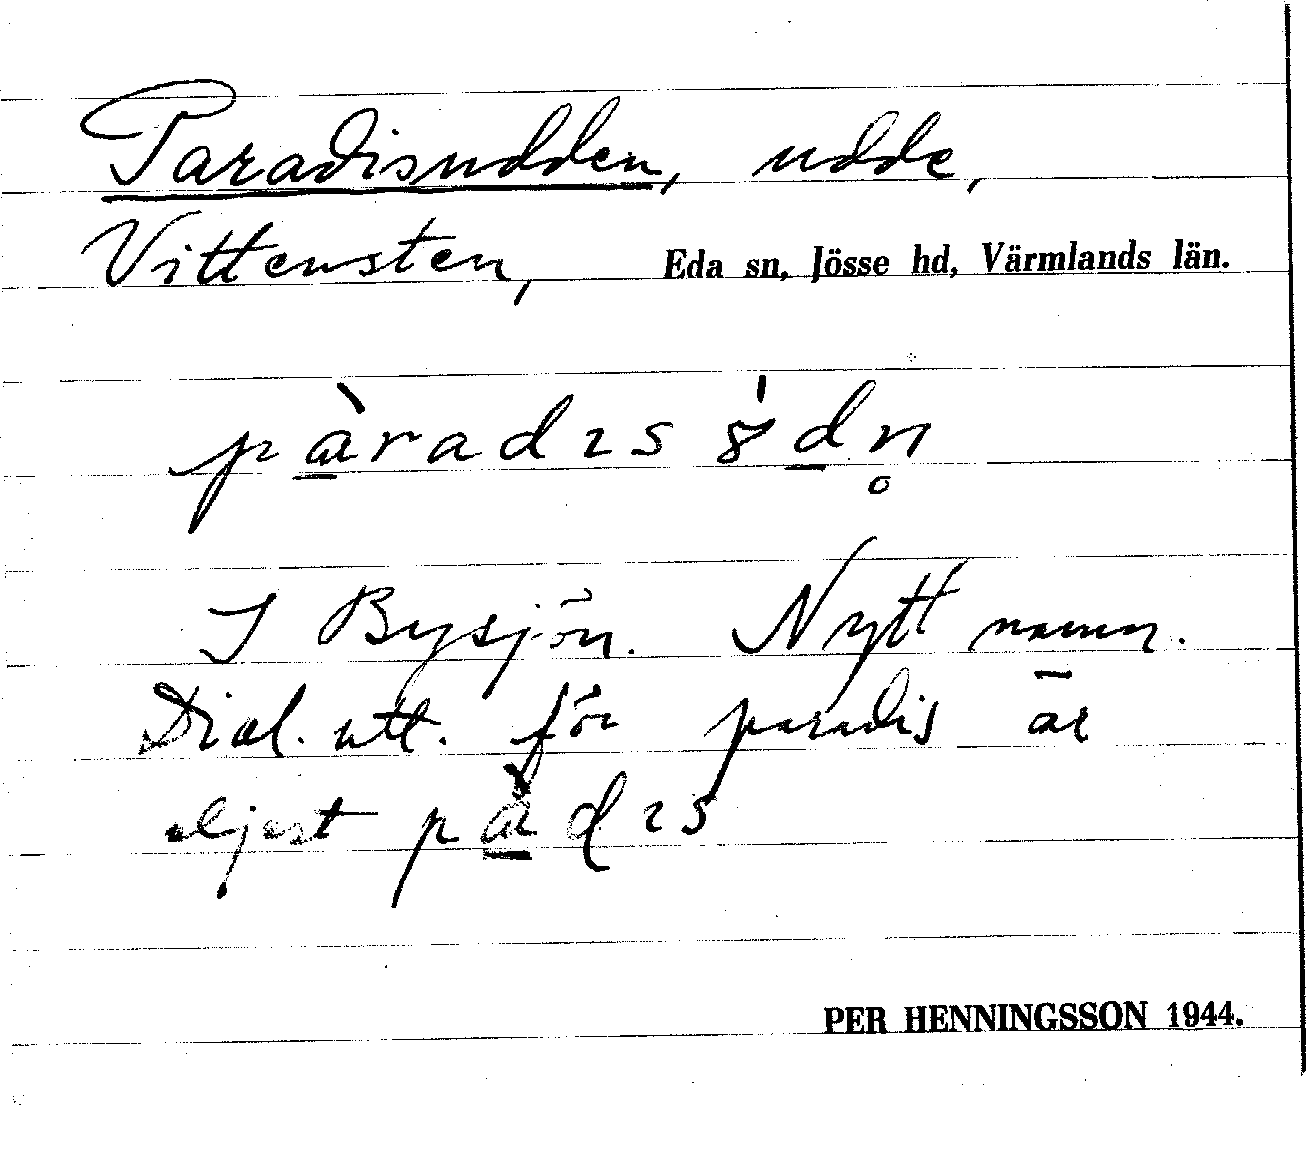 Paradisudden, udde,
Vittensten, Eda sn, Jösse hd, Värmlands län.
pàradıs 8́dn̥
I Bysjön. Nytt namn.
Dial. utt. för paradis är
eljest pàdıs
PER HENNINGSSON 1944.